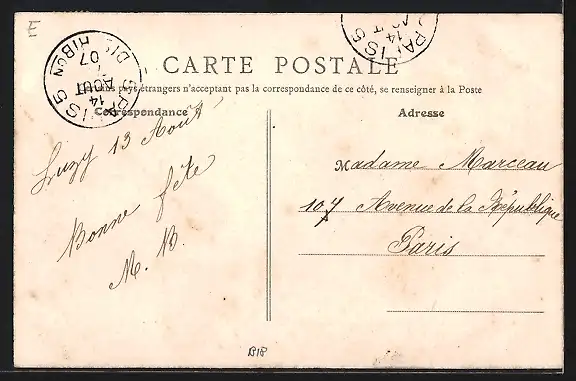 E
PARIS 5
DISTRIBON
14
AOUT
07
PARIS 5
14
CARTE POSTALE
pays étrangers n'acceptant pas la correspondance de ce côté, se renseigner à la Poste
Correspondance
Adresse
Luzy 13 Août
Bonne fête
M. B.
Madame Marceau
107 Avenue de la République
Paris